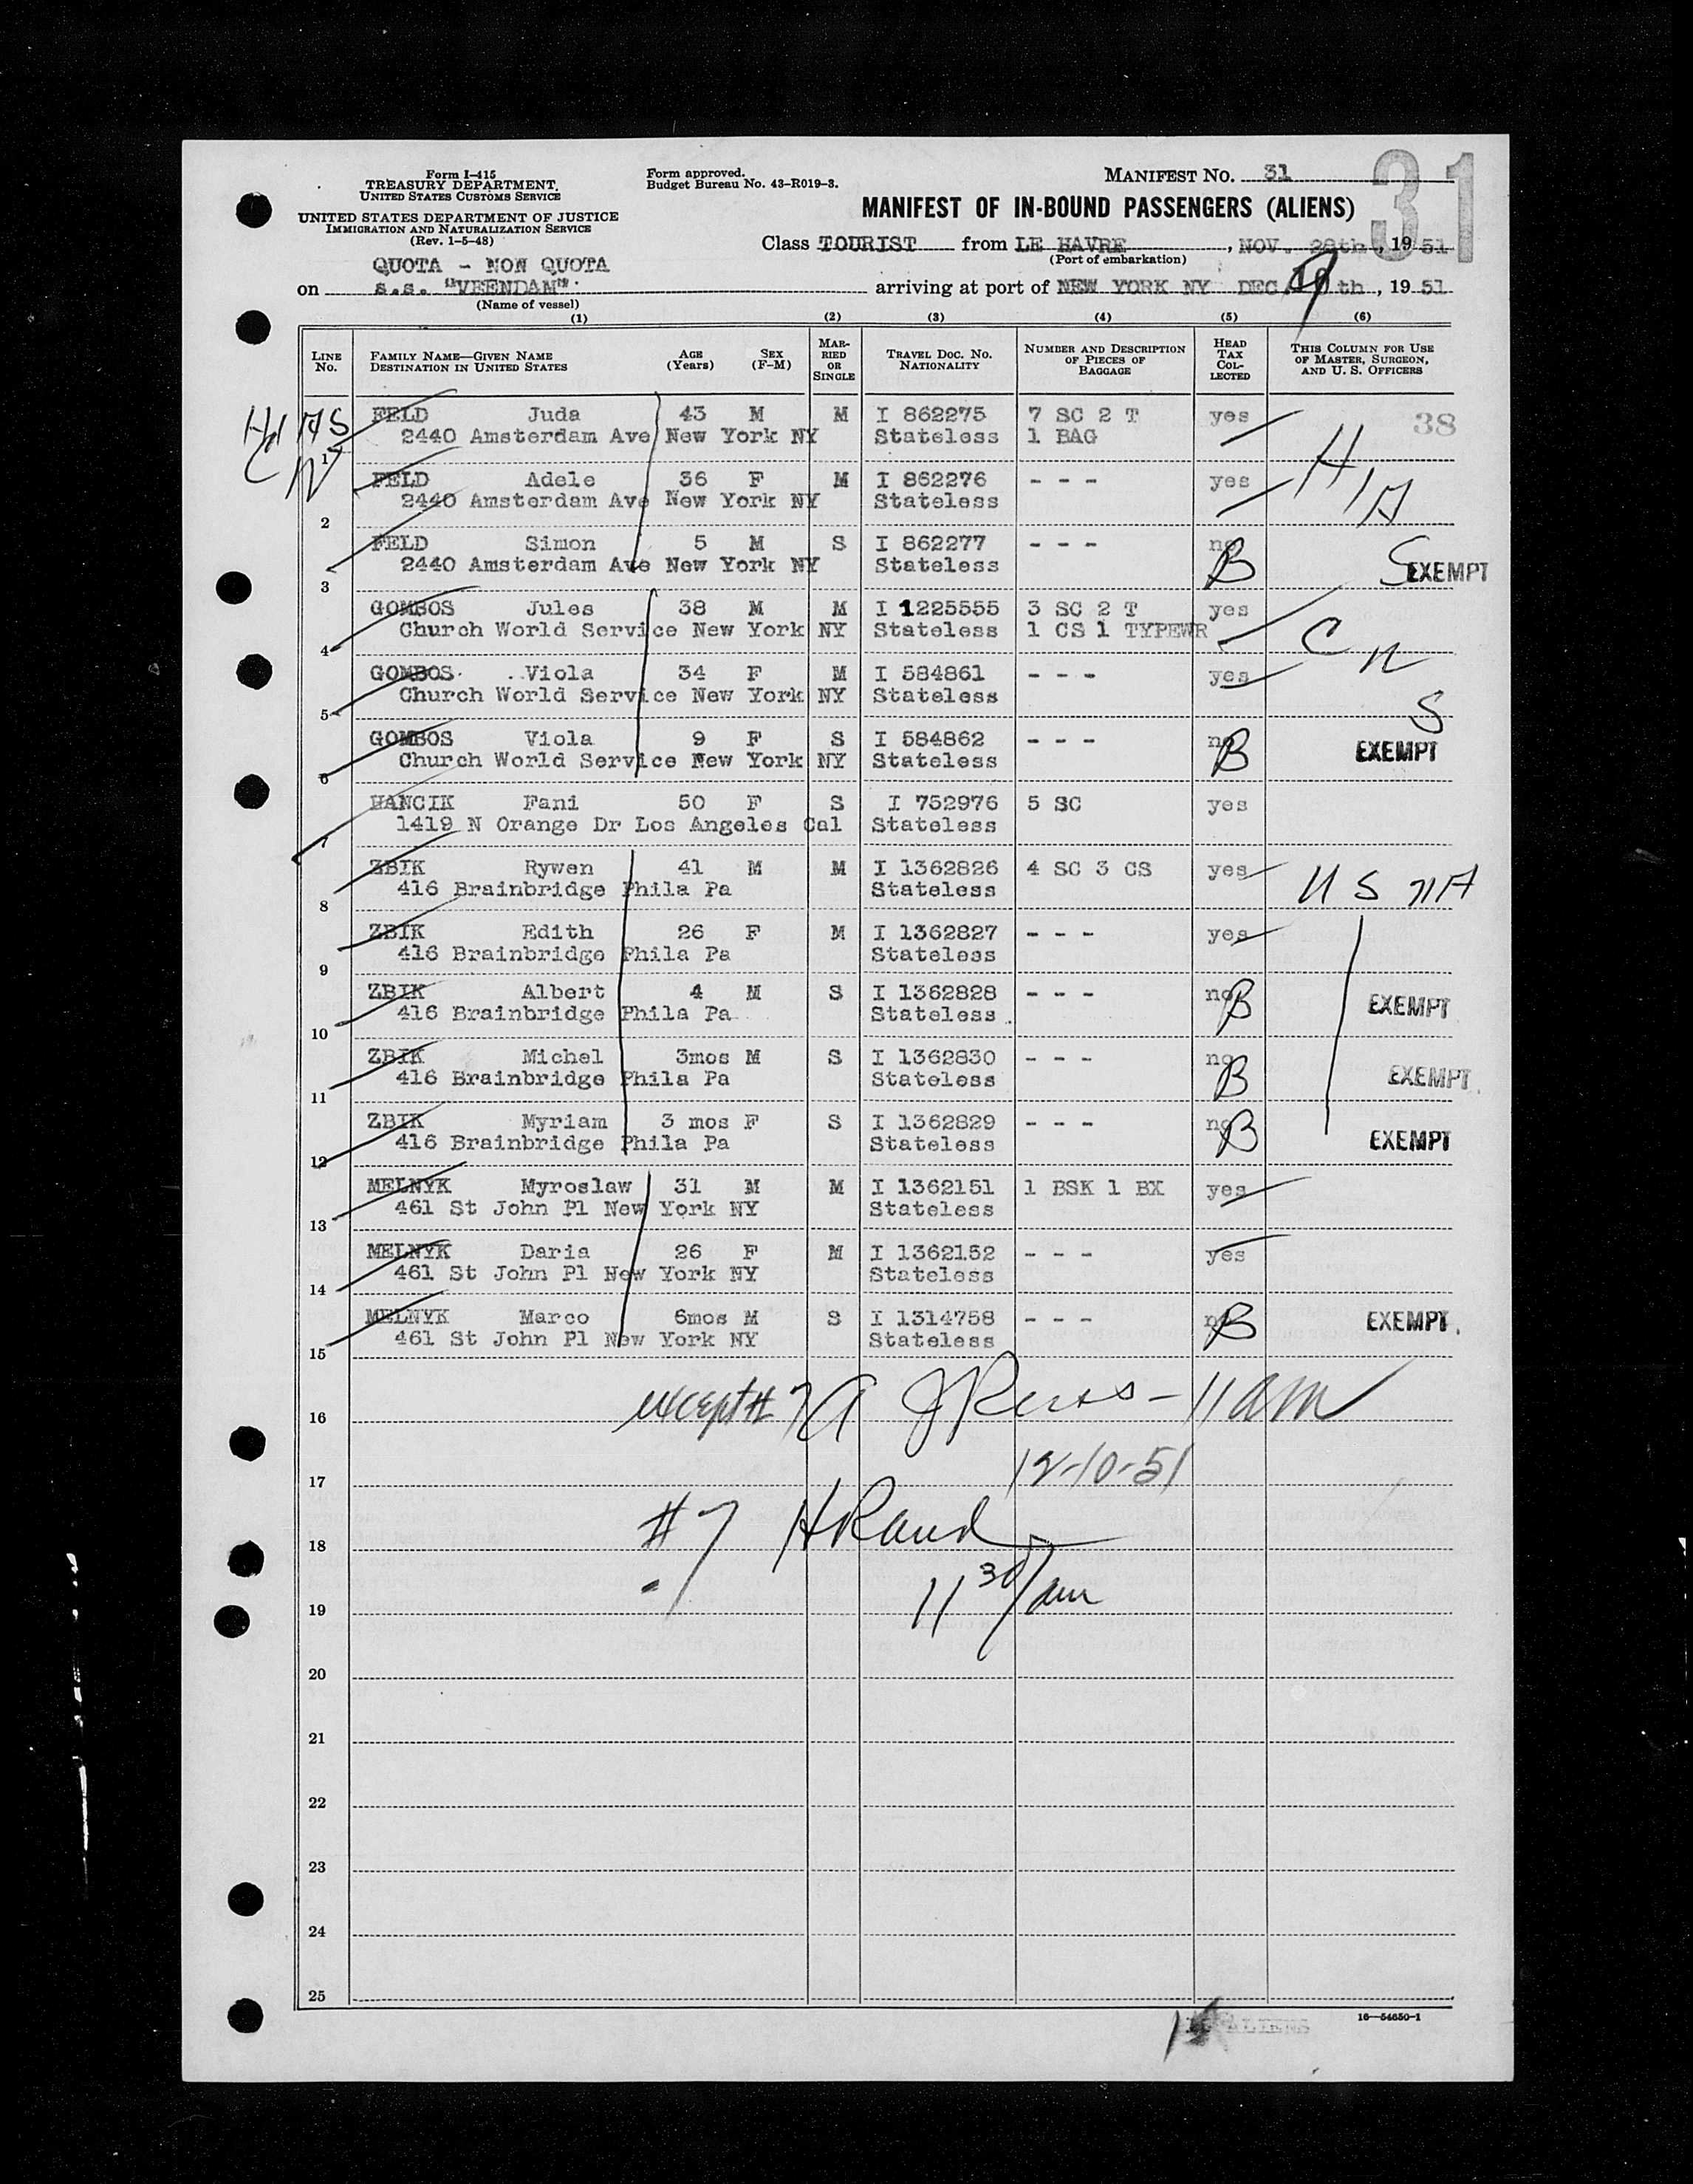 Form I-415
TREASURY DEPARTMENT
UNITED STATES CUSTOMS SERVICE
UNITED STATES DEPARTMENT OF JUSTICE
IMMIGRATION AND NATURALIZATION SERVICE
(Rev. 1-5-48)
Form approved.
Budget Bureau No. 43-R019-3.
MANIFEST NO. 31
31
MANIFEST OF IN-BOUND PASSENGERS (ALIENS)
Class TOURIST from LE HAVRE, NOV. 28th, 19 51
(Port of embarkation)
QUOTA - NON QUOTA
on s.s. "VEENDAM" arriving at port of NEW YORK NY DEC. 9 th, 19 51
(Name of vessel)
(1) (2) (3) (4) (5) (6)
LINE No. FAMILY NAME—GIVEN NAME DESTINATION IN UNITED STATES AGE (Years) SEX (F-M) MARRIED OR SINGLE TRAVEL DOC. NO. NATIONALITY NUMBER AND DESCRIPTION OF PIECES OF BAGGAGE HEAD TAX COLLECTED THIS COLUMN FOR USE OF MASTER, SURGEON, AND U. S. OFFICERS
FELD Juda 43 M M I 862275 7 SC 2 T yes 38
1 2440 Amsterdam Ave New York NY Stateless 1 BAG
FELD Adele 36 F M I 862276 - - - yes H I A
2 2440 Amsterdam Ave New York NY Stateless
FELD Simon 5 M S I 862277 - - - no B S EXEMPT
3 2440 Amsterdam Ave New York NY Stateless
GOMBOS Jules 38 M M I 1225555 3 SC 2 T yes
4 Church World Service New York NY Stateless 1 CS 1 TYPEWR C
GOMBOS Viola 34 F M I 584861 - - - yes
5 Church World Service New York NY Stateless S
GOMBOS Viola 9 F S I 584862 - - - no B EXEMPT
6 Church World Service New York NY Stateless
HANCIK Fani 50 F S I 752976 5 SC yes
7 1419 N Orange Dr Los Angeles Cal Stateless
ZBIK Rywen 41 M M I 1362826 4 SC 3 CS yes U S N A
8 416 Brainbridge Phila Pa Stateless
ZBIK Edith 26 F M I 1362827 - - - yes
9 416 Brainbridge Phila Pa Stateless
ZBIK Albert 4 M S I 1362828 - - - no B EXEMPT
10 416 Brainbridge Phila Pa Stateless
ZBIK Michel 3mos M S I 1362830 - - - no B EXEMPT
11 416 Brainbridge Phila Pa Stateless
ZBIK Myriam 3 mos F S I 1362829 - - - no B EXEMPT
12 416 Brainbridge Phila Pa Stateless
MELNYK Myroslaw 31 M M I 1362151 1 BSK 1 BX yes
13 461 St John Pl New York NY Stateless
MELNYK Daria 26 F M I 1362152 - - - yes
14 461 St John Pl New York NY Stateless
MELNYK Marco 6mos M S I 1314758 - - - no B EXEMPT
15 461 St John Pl New York NY Stateless
16 except # 7 11 am
17 12-10-51
18 #7 HRand
19 11 30/am
20
21
22
23
24
25
ALIENS
16—54650-1